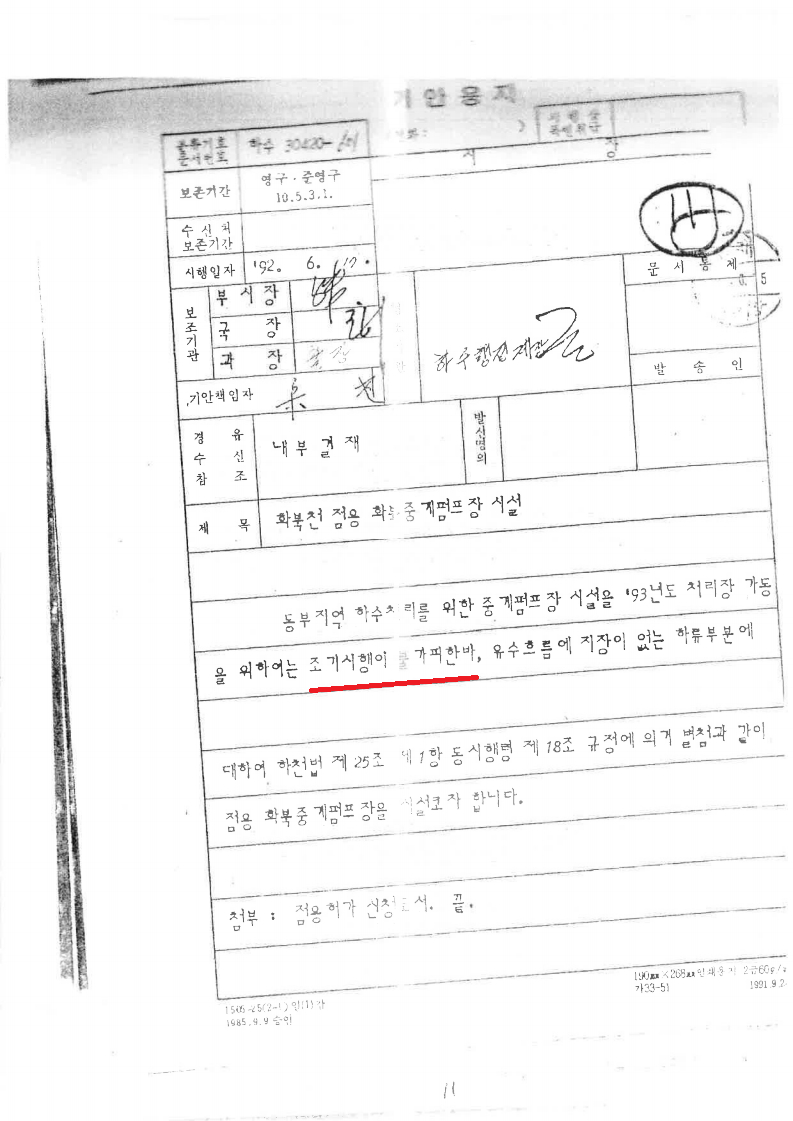 기안용지
분류기호
문서번호
하수 30420-
시장
보존기간
영구·준영구
10.5.3.1.
수신처
보존기간
시행일자 '92. 6. 17.
보조기관
부시장
국장
과장
기안책임자
하수행정계장
문서통제
발송인
경유
수신
참조
내부결재
발신명의
제목
화북천 점용 화북중계펌프장 시설
동부지역 하수처리를 위한 중계펌프장 시설을 '93년도 처리장 가동
을 위하여는 조기시행이 불가피한바, 유수흐름에 지장이 없는 하류부분에
대하여 하천법 제 25조 제1항 동시행령 제 18조 규정에 의거 별첨과 같이
점용 화북중계펌프장을 시설코자 합니다.
첨부 : 점용허가 신청도서. 끝.
1505-25(2-1)일(1)갑
1985.9.9 승인
190㎜×268㎜인쇄용지 2급60g/
가33-51
1991.9.2
11